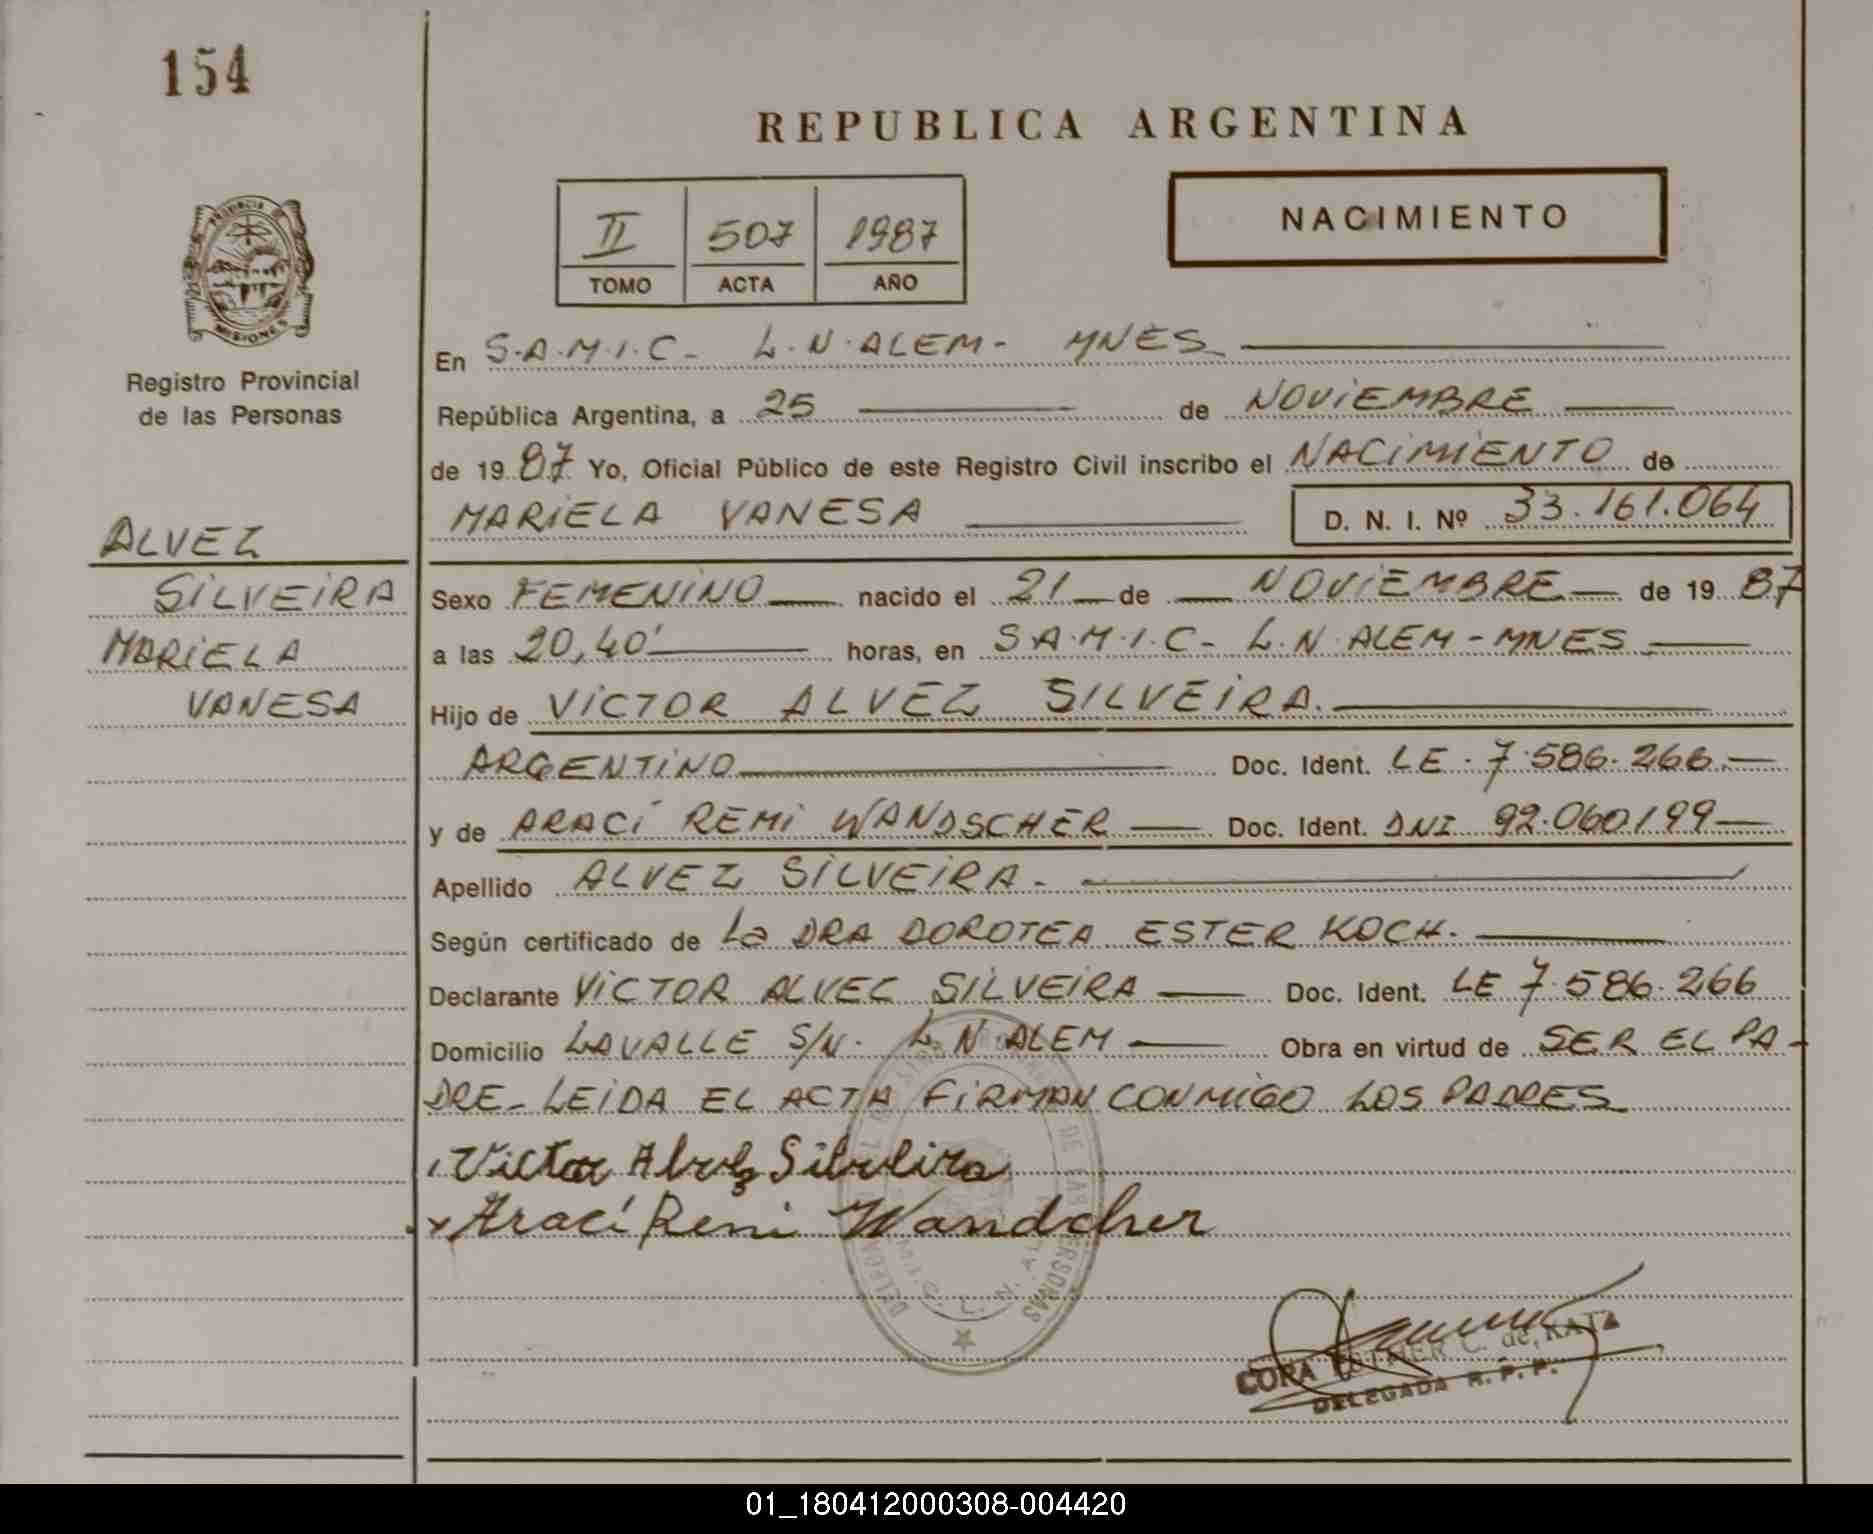 154
REPUBLICA ARGENTINA
II 507 1987
TOMO ACTA AÑO
NACIMIENTO
PROVINCIA
MISIONES
Registro Provincial
de las Personas
ALVEZ
SILVEIRA
MARIELA
VANESA
En S.A.M.I.C- L.N.ALEM- MNES
República Argentina, a 25 de NOVIEMBRE
de 1987 Yo, Oficial Público de este Registro Civil inscribo el NACIMIENTO de
MARIELA VANESA D. N. I. Nº 33.161.064
Sexo FEMENINO nacido el 21 de NOVIEMBRE de 1987
a las 20,40' horas, en S.A.M.I.C- L.N.ALEM-MNES
Hijo de VICTOR ALVEZ SILVEIRA.
ARGENTINO Doc. Ident. LE.7.586.266.
y de ARACÍ REMI WANDSCHER Doc. Ident. DNI 92.060199
Apellido ALVEZ SILVEIRA.
Según certificado de La DRA DOROTEA ESTER KOCH.
Declarante VICTOR ALVEC SILVEIRA Doc. Ident. LE 7.586.266
Domicilio LAVALLE S/N. L.N.ALEM Obra en virtud de SER EL PA-
DRE- LEIDA EL ACTA FIRMAN CONMIGO LOS PADRES
Victor Alvez Silveira
x Arací Remi Wandcher
DE LAS PERSONAS
L. N. AL
CORA ESTHER C. de KATZ
DELEGADA R. P. P.
01_180412000308-004420